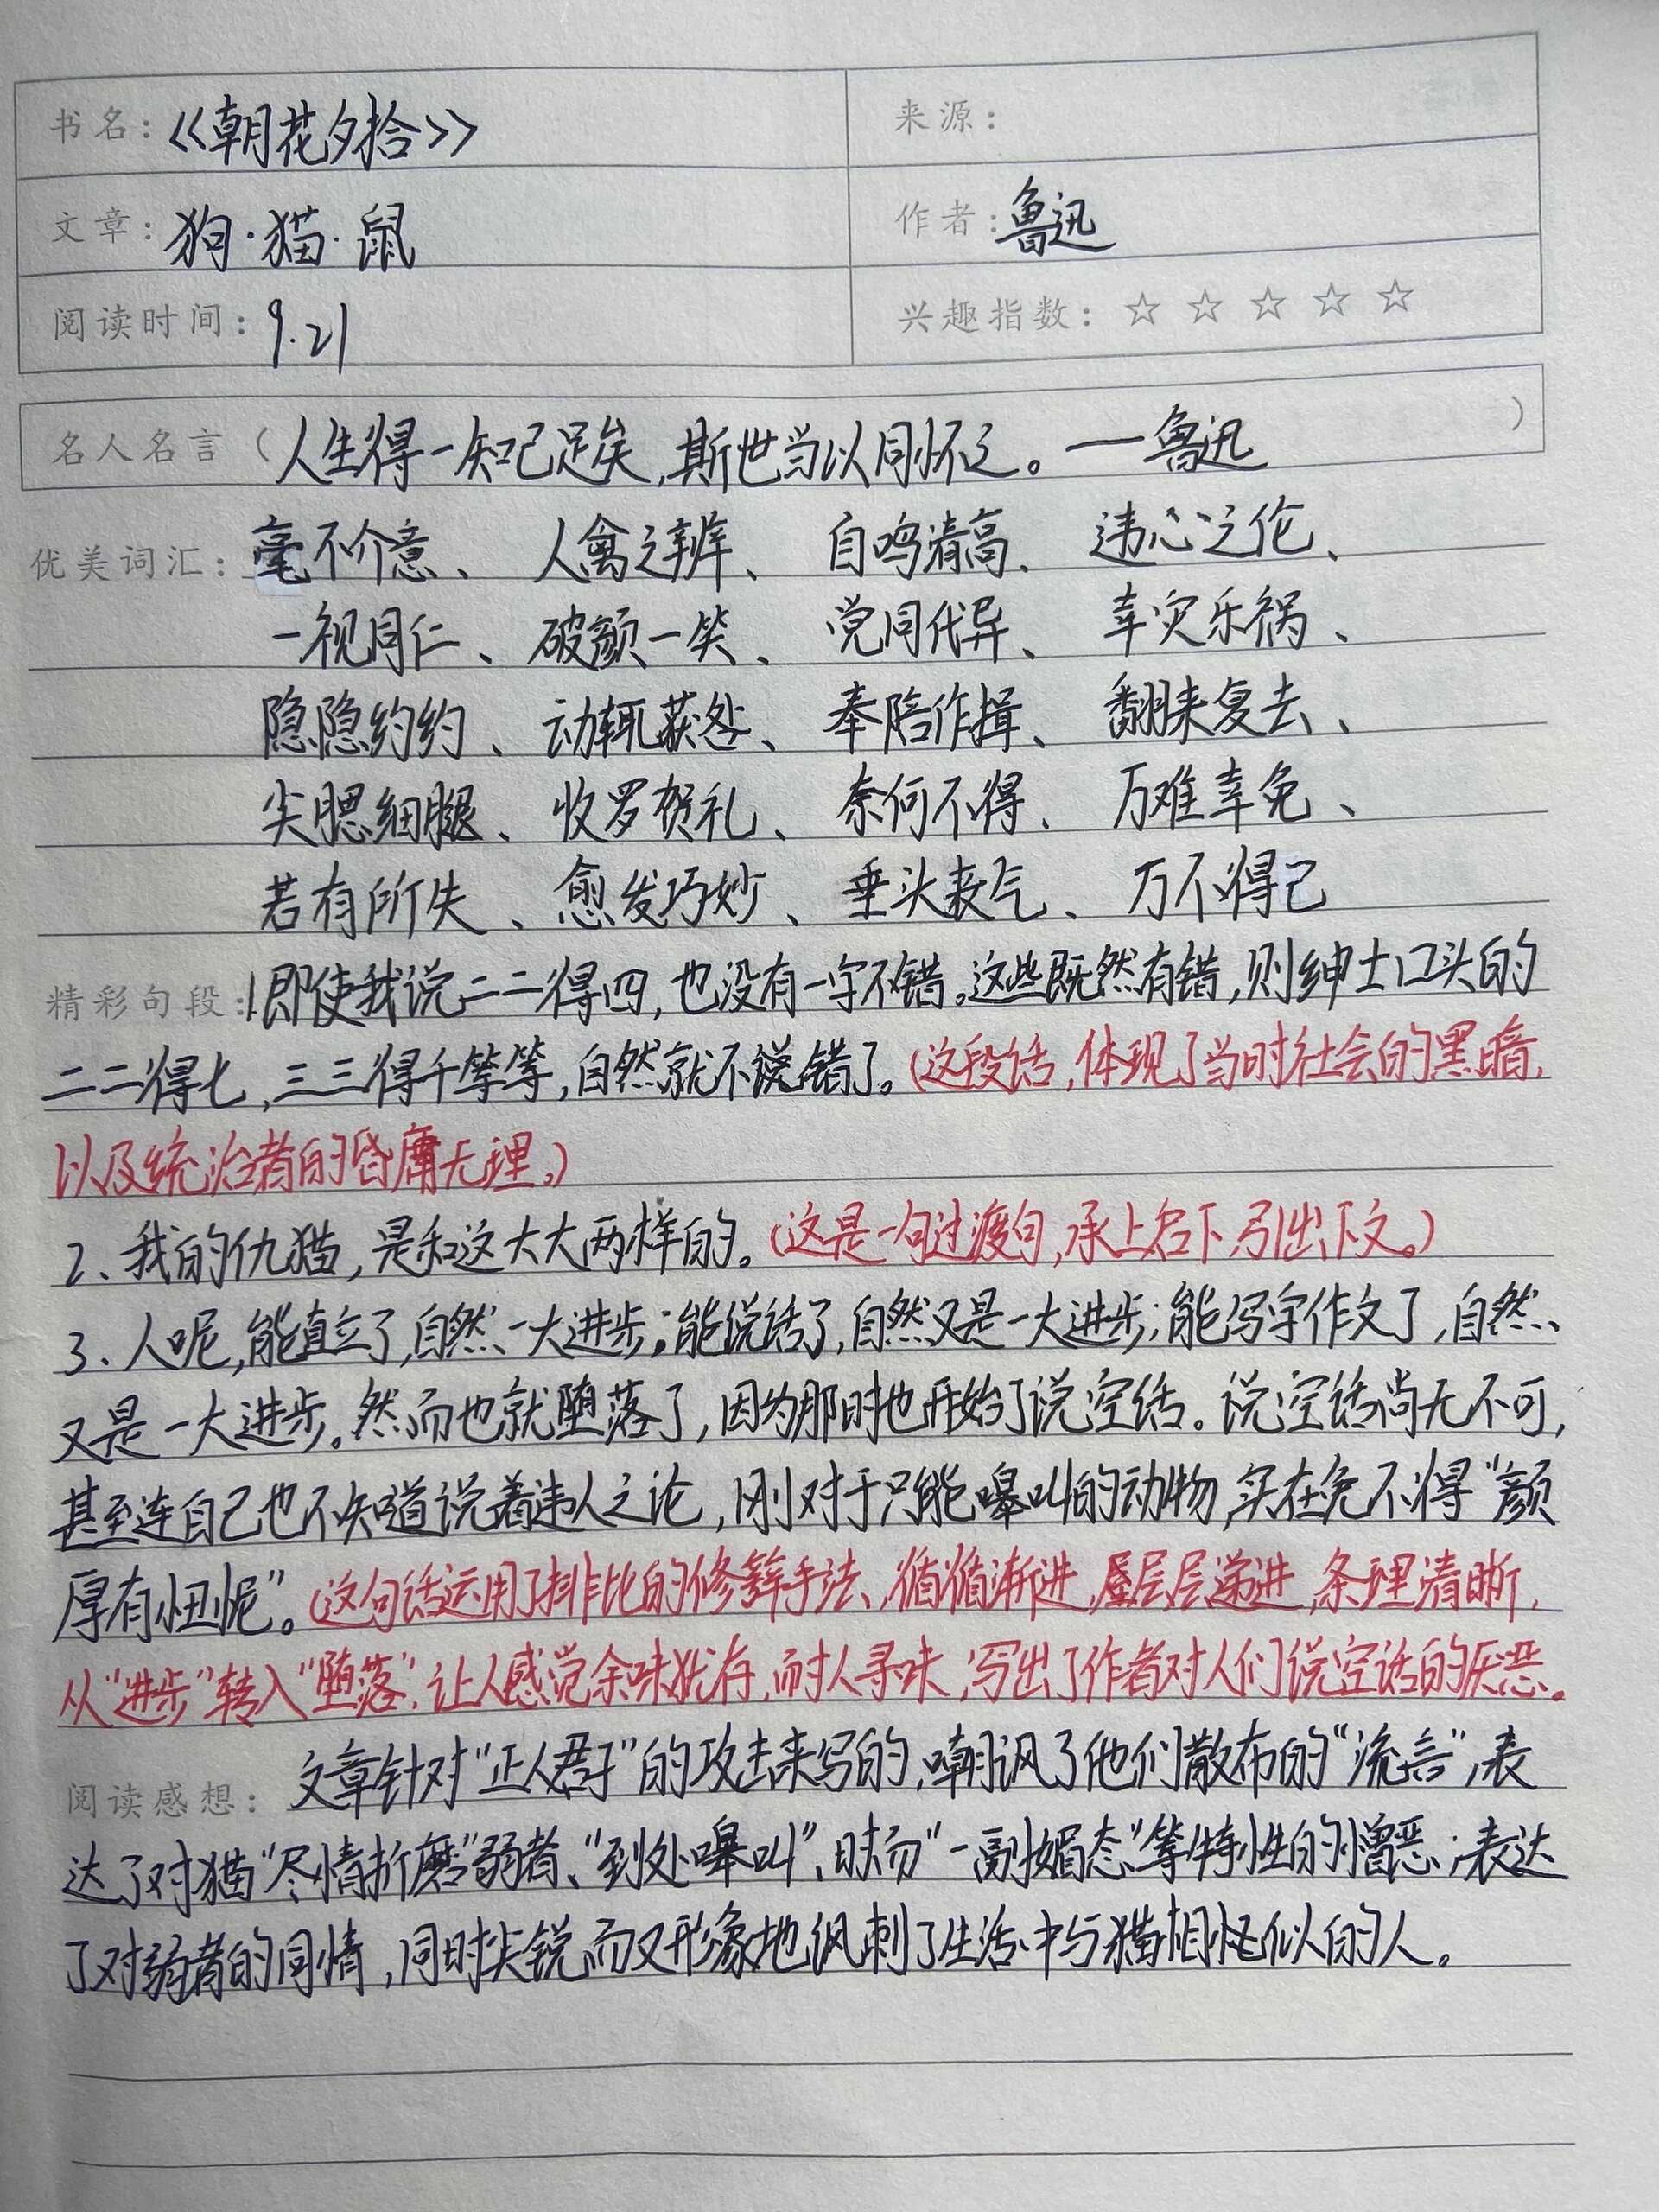 书名：《朝花夕拾》 来源：
文章：狗·猫·鼠 作者：鲁迅
阅读时间：9.21 兴趣指数：☆ ☆ ☆ ☆ ☆
名人名言（人生得一知己足矣，斯世当以同怀之。——鲁迅）
优美词汇：毫不介意、 人禽之辨、 自鸣清高、 违心之伦、
一视同仁、 破颜一笑、 党同伐异、 幸灾乐祸、
隐隐约约、 动辄获咎、 奉陪作揖、 翻来复去、
尖腮细腿、 收罗贺礼、 奈何不得、 万难幸免、
若有所失、 愈发巧妙、 垂头丧气、 万不得已
精彩句段：1、即使我说二二得四，也没有一字不错。这些既然有错，则绅士口头的
二二得七，三三得千等等，自然就不说错了。（这段话，体现了当时社会的黑暗，
以及统治者的昏庸无理。）
2、我的仇猫，是和这大大两样的。（这是一句过渡句，承上启下，引出下文。）
3、人呢，能直立了，自然一大进步；能说话了，自然又是一大进步；能写字作文了，自然
又是一大进步。然而也就堕落了，因为那时也开始了说空话。说空话尚无不可，
甚至连自己也不知道说着违人之论，刚对于只能嗥叫的动物，实在免不得“颜
厚有忸怩”。（这句话运用了排比的修辞手法、循循渐进，层层递进，条理清晰，
从“进步”转入“堕落”，让人感觉余味犹存，耐人寻味，写出了作者对人们说空话的厌恶。
阅读感想：文章针对“正人君子”的攻击来写的，嘲讽了他们散布的“流言”，表
达了对猫“尽情折磨”弱者、“到处嗥叫”、时而“一副媚态”等特性的憎恶；表达
了对弱者的同情，同时尖锐而又形象地讽刺了生活中与猫相似的人。